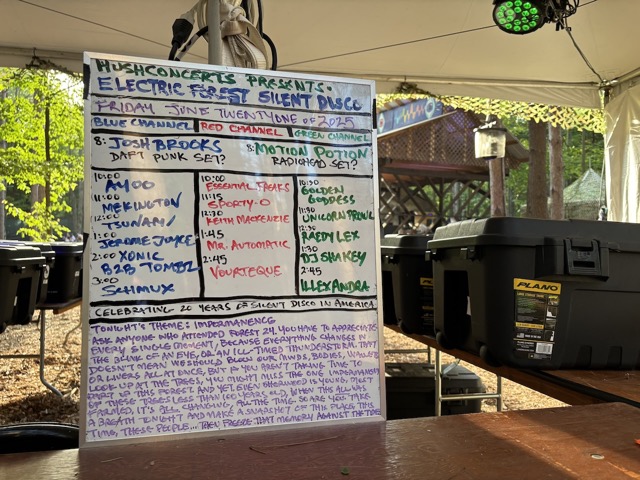 HUSHCONCERTS PRESENTS:
ELECTRIC FOREST SILENT DISCO
FRIDAY JUNE TWENTYONE OF 2025
BLUE CHANNEL RED CHANNEL GREEN CHANNEL
8: JOSH BROOKS 8: MOTION POTION
DAFT PUNK SET? RADIOHEAD SET?
10:00
AYOO
11:00
MEKINGTON
12:00
TSUNAMI
1:00
JEROME JOYCE
2:00 XONIC
B2B TOMBZ
3:00
SCHMUX
10:00
ESSENTIAL FREAKS
11:15
SPORTY-O
12:30
KEITH MACKENZIE
1:45
MR. AUTOMATIC
2:45
VOURTEQUE
10:30
GOLDEN
GODDESS
11:30
UNICORN PRONK
12:30
RAEDY LEX
1:30
DJ SHAKEY
2:45
ILLEXANDRA
CELEBRATING 20 YEARS OF SILENT DISCO IN AMERICA
TONIGHT'S THEME: IMPERMANENCE
ASK ANYONE WHO ATTENDED FOREST 24. YOU HAVE TO APPRECIATE
EVERY SINGLE MOMENT, BECAUSE EVERYTHING CHANGES IN
THE BLINK OF AN EYE, OR AN ILL TIMED THUNDERSTORM. THAT
DOESN'T MEAN WE SHOULD BLOW OUR MINDS, BODIES, WALLETS
OR LIVERS ALL AT ONCE, BUT IF YOU AREN'T TAKING TIME TO
LOOK UP AT THE TREES, YOU MIGHT MISS THE ONE IMPERMANENT
PART OF THIS FOREST AND YET EVEN SHERWOOD IS YOUNG, MOST
OF THESE TREES LESS THAN 100 YEARS OLD, WHEN THIS ALL WAS
FARMED, IT'S ALL CHANGING, ALL THE TIME. SO ARE YOU. TAKE
A BREATH TONIGHT AND MAKE A SNAPSHOT OF THIS PLACE, THIS
TIME, THESE PEOPLE... THEN FREEZE THAT MEMORY AGAINST THE TIDE
PLANO